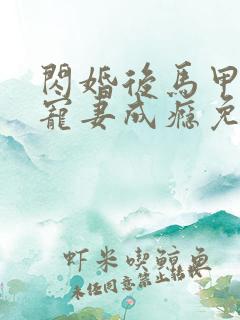 閃婚後馬甲
寵妻成癮免
虾米喫鯨魚
未经同意禁止转载